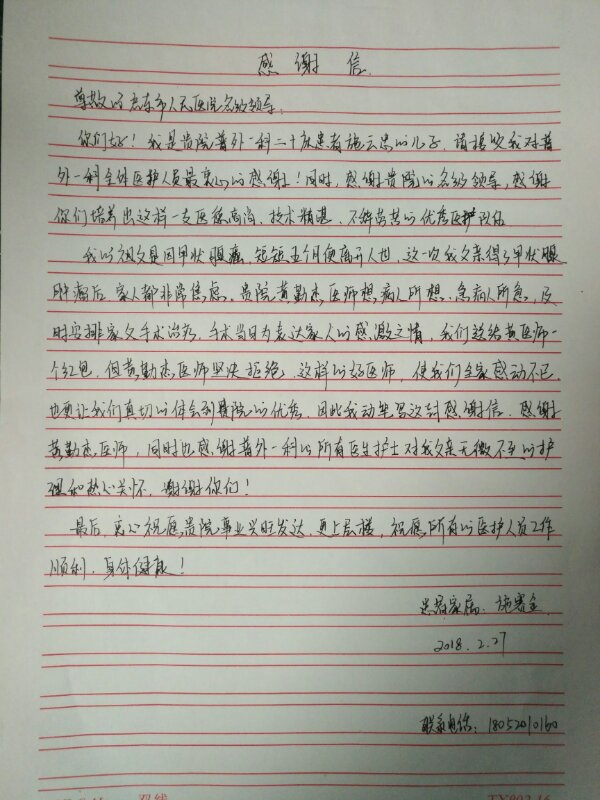 感谢信
尊敬的启东市人民医院各级领导:
你们好!我是贵院普外一科二十床患者施云忠的儿子,请接受我对普
外一科全体医护人员最衷心的感谢!同时,感谢贵院的各级领导,感谢
你们培养出这样一支医德高尚、技术精湛、不辞劳苦的优秀医护队伍
我的祖父是因甲状腺癌,短短五个月便离开人世,这一次我父亲得了甲状腺
肿瘤后,家人都非常焦虑。贵院黄勤杰医师想病人所想,急病人所急,及
时安排家父手术治疗,手术当日为表达家人的感激之情,我们送给黄医师一
个红包,但黄勤杰医师坚决拒绝,这样的好医师,使我们全家感动不已
也更让我们真切的体会到贵院的优秀,因此我动笔写这封感谢信,感谢
黄勤杰医师,同时也感谢普外一科的所有医生护士对我父亲无微不至的护
理和热心关怀,谢谢你们!
最后,衷心祝愿贵院事业兴旺发达,更上层楼,祝愿所有的医护人员工作
顺利,身体健康!
患者家属:施赛金
2018.2.27
联系电话:18052010160
双线